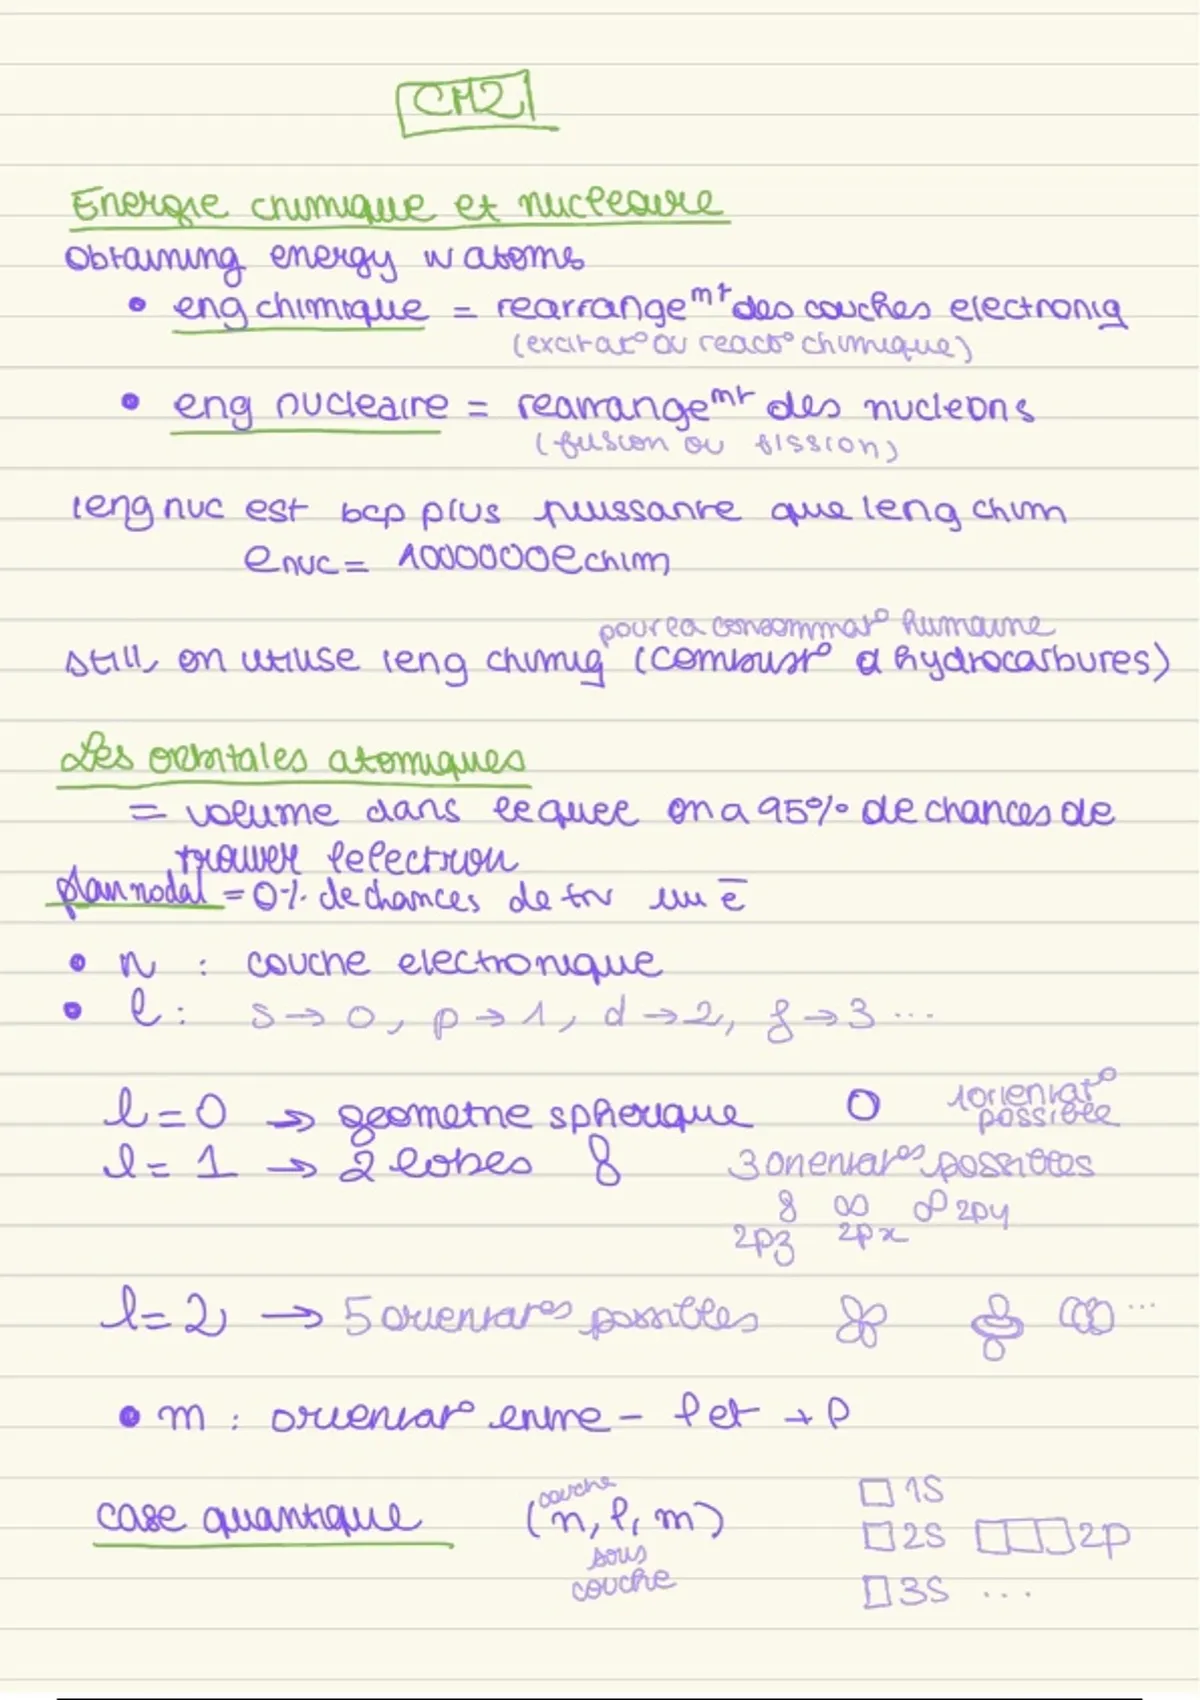 CM2
Energie chimique et nucleaire
Obtaining energy w atoms
• eng chimique = rearrangemt des couches electroniq
(excitat° ou react° chimique)
• eng nucleaire = rearrangemt des nucleons
(fusion ou fission)
leng nuc est bcp plus puissante que leng chim
enuc = 1000000echim
pour la consommat° humaine
still, on utilise leng chimiq (combust° d hydrocarbures)
Les orbitales atomiques
= volume dans lequel on a 95% de chances de
trouver lelectron
plan nodal = 0% de chances de trv un e̅
• n : couche electronique
• l : s → 0, p → 1, d → 2, f → 3 ...
l = 0 → geometrie spherique 1 orientat° possible
l = 1 → 2 lobes 3 orientat°s possibles
2pz 2px 2py
l = 2 → 5 orientat°s possibles ...
• m : orientat° entre - l et + l
case quantique (n, l, m)
couche
sous
couche
1s
2s 2p
3s ...